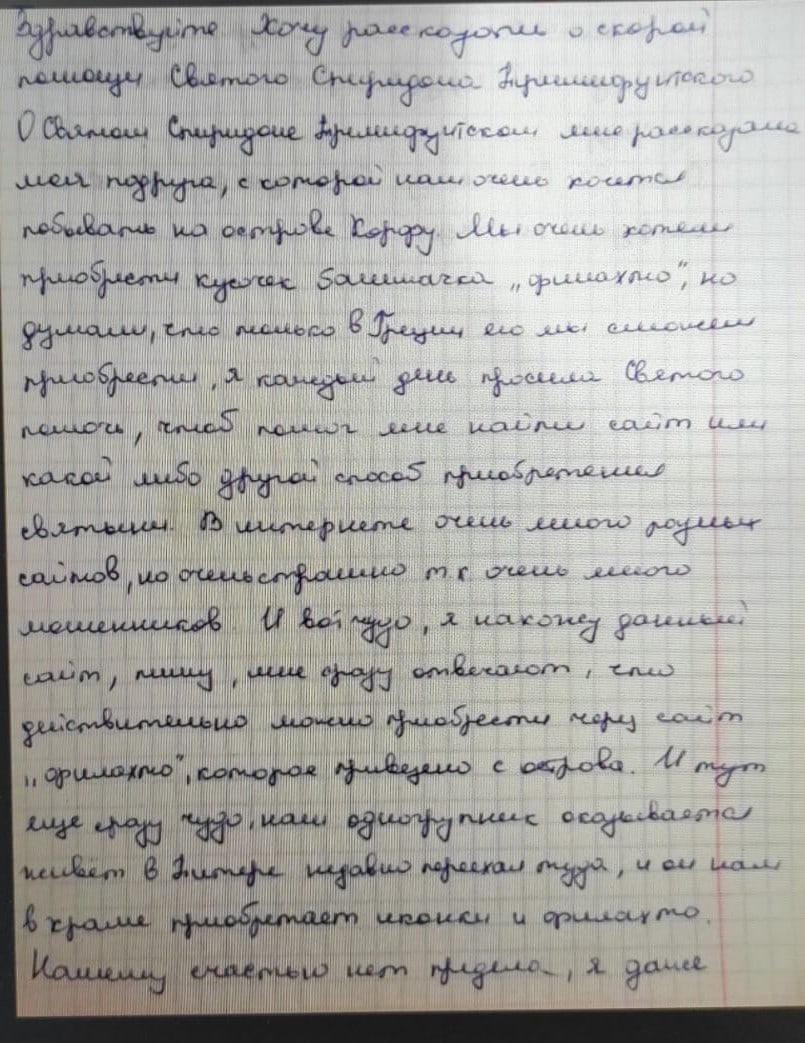 Здравствуйте Хочу рассказать о скорой
помощи Святого Спиридона Тримифунтского
О Святом Спиридоне Тримифунтском мне рассказала
моя подруга, с которой нам очень хочется
побывать на острове Корфу. Мы очень хотели
приобрести кусочек башмачка „филахто", но
думали, что только в Греции его мы сможем
приобрести, я каждый день просила Святого
помочь, чтоб помог мне найти сайт или
какой либо другой способ приобретения
святыни. В интернете очень много разных
сайтов, но очень страшно т.к очень много
мошенников. И вот чудо, я нахожу данный
сайт, пишу, мне сразу отвечают, что
действительно можно приобрести через сайт
„филахто", которое привезено с острова. И тут
еще сразу чудо, наш одногрупник оказывается
живёт в Питере недавно переехал туда, и он нам
в храме приобретает иконки и филахто.
Нашему счастью нет предела, я даже